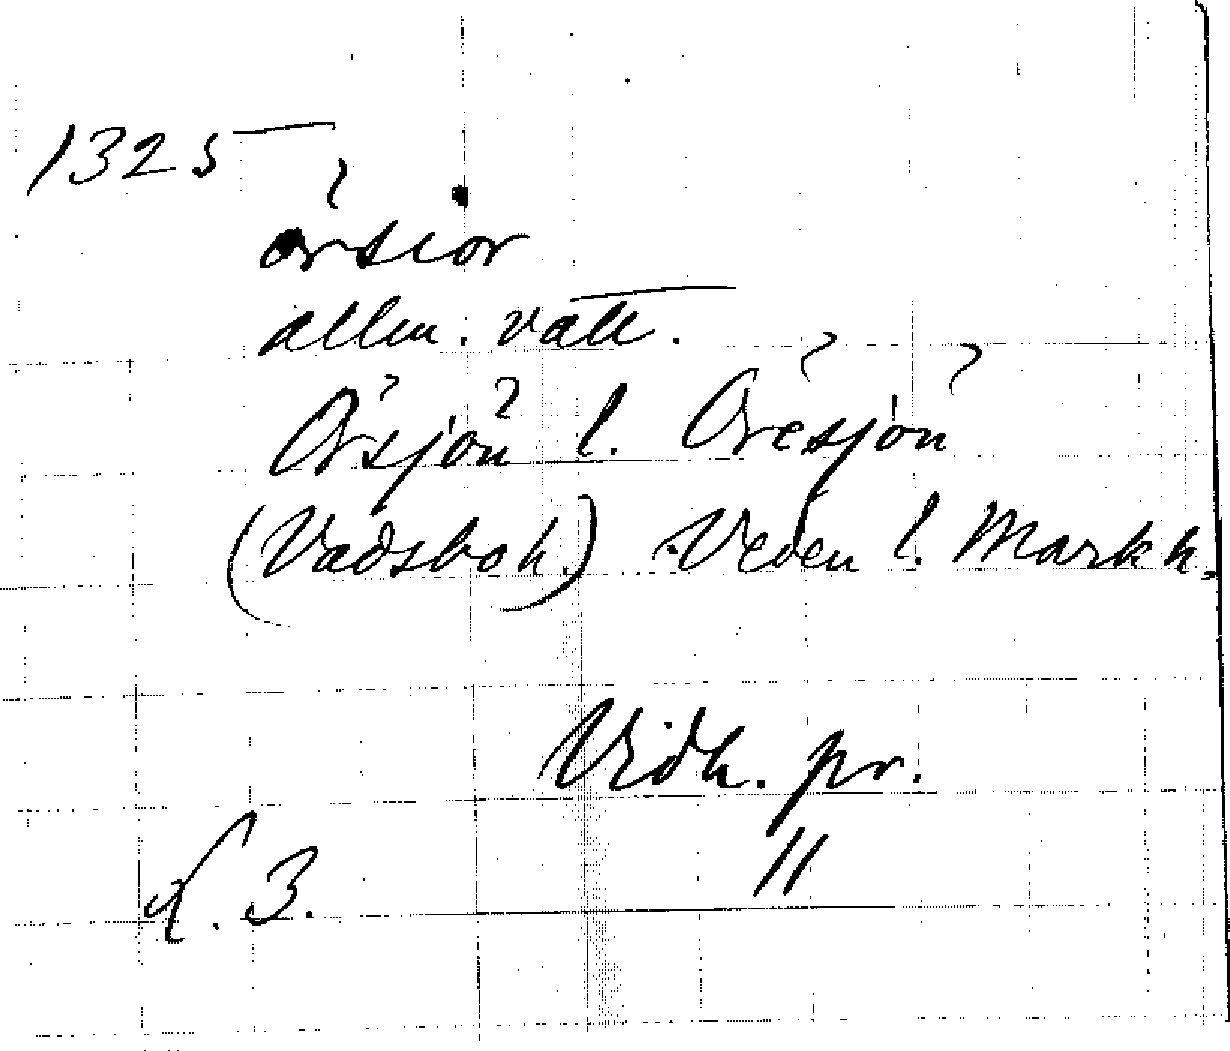 1325
?
orsior
allm. vatt.
? ? ? ?
Orsjon l. Oresjon
(Vadsboh.) Veden l. Markh.
Vidh. pr.
f. 3. "